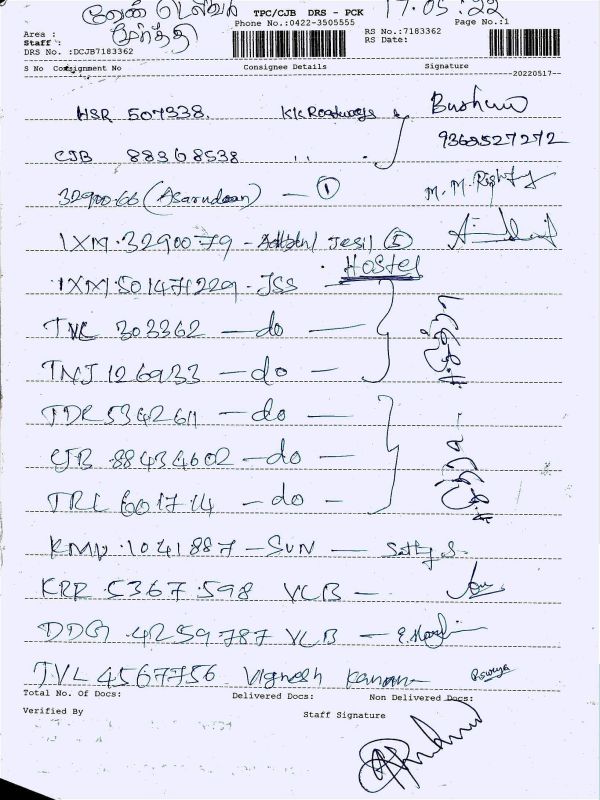 வேன் டெலிவரி TPC/CJB DRS - PCK 17.05.22
மூர்த்தி Phone No.:0422-3505555 Page No.:1
Area : RS No.:7183362
Staff : RS Date:
DRS No. :DCJB7183362
S No Consignment No Consignee Details Signature
20220517
HSR 507338. KK Roadways
CJB 88368538 " 9360527272
3290066 (Asarudeen) — ①
IXM.3290079 - Jesil ⑤
Hostel
IXM 501471229 - JSS
TVL 303362 — do —
TNJ 126933 — do —
TDR 5342611 — do —
CJB 88434602 — do —
TRL 601714 — do —
KMU.1041887 — SUN — Sathy S.
KRR 5367598 VCB —
DDG 4259787 VCB —
TVL 4567756 Vignesh Kannan
Total No. Of Docs: Delivered Docs: Non Delivered Docs:
Verified By Staff Signature